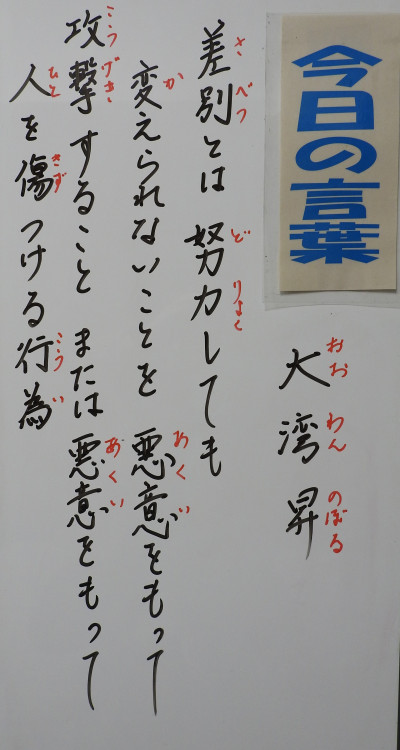 今日の言葉
大湾昇
おお わん のぼる
差別とは 努力しても
さ べつ ど りょく
変えられないことを 悪意をもって
か あく い
攻撃すること または 悪意をもって
こう げき あく い
人を傷つける行為
ひと きず こう い